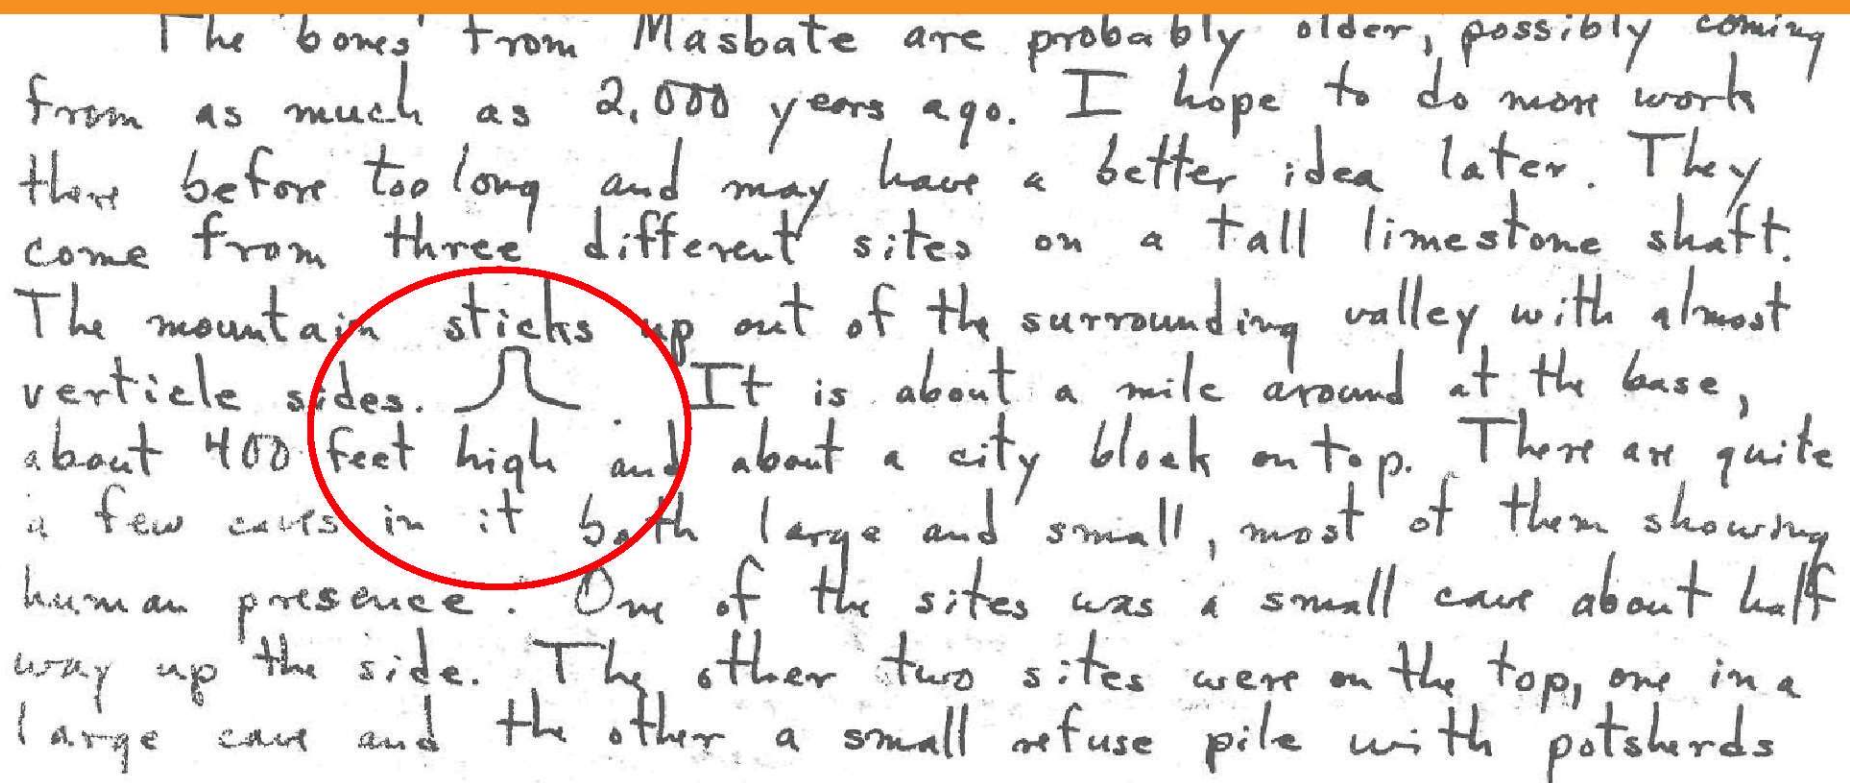 The bones from Masbate are probably older, possibly coming
from as much as 2,000 years ago. I hope to do more work
there before too long and may have a better idea later. They
come from three different sites on a tall limestone shaft.
The mountain sticks up out of the surrounding valley with almost
verticle sides. It is about a mile around at the base,
about 400 feet high and about a city block on top. There are quite
a few caves in it both large and small, most of them showing
human presence. One of the sites was a small cave about half
way up the side. The other two sites were on the top, one in a
large cave and the other a small refuse pile with potsherds